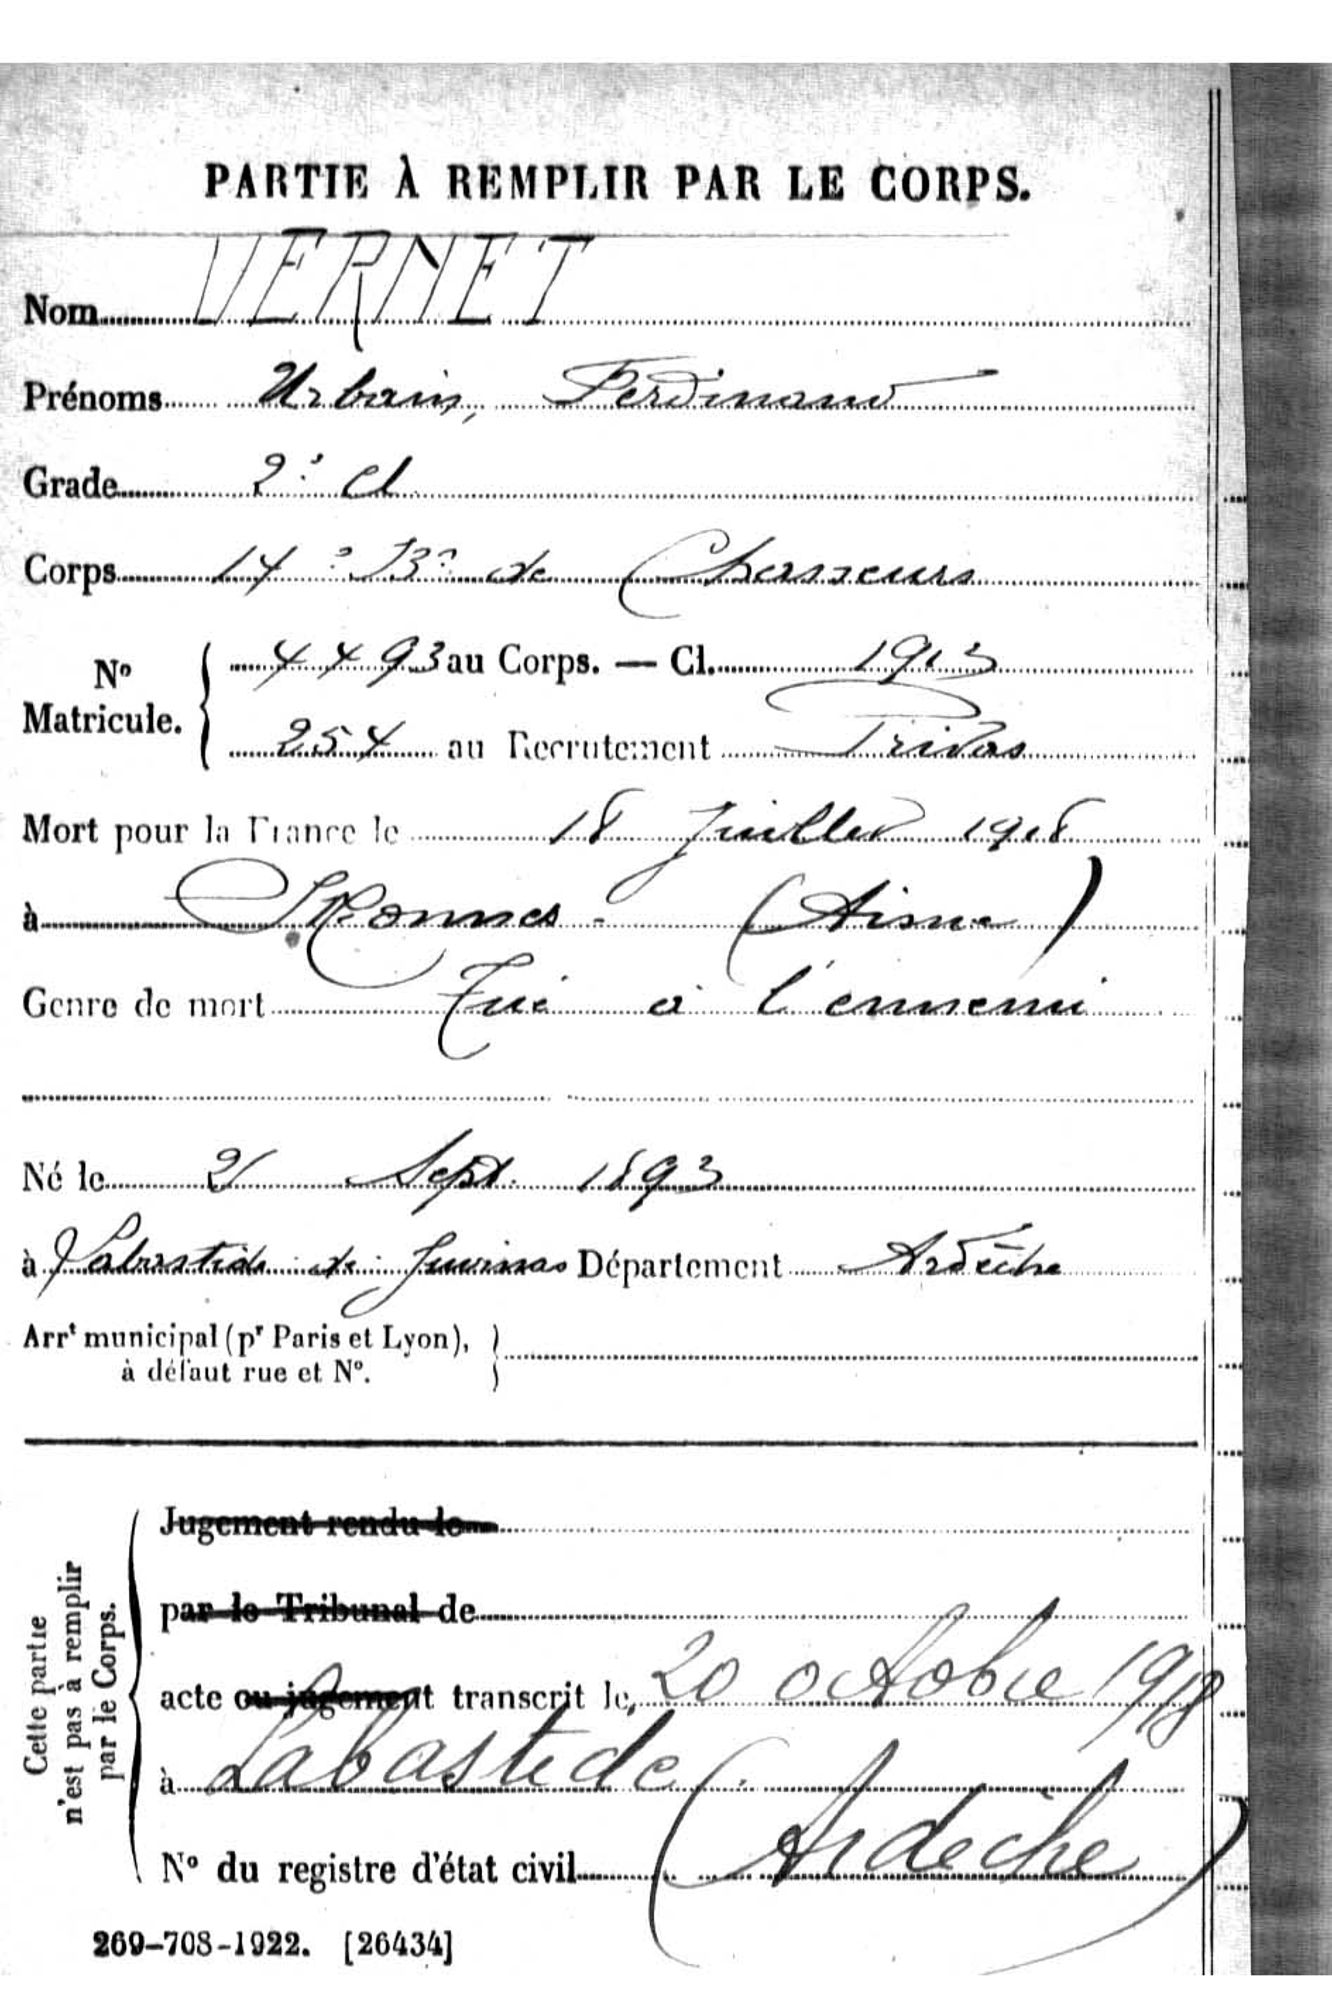 PARTIE À REMPLIR PAR LE CORPS.
Nom VERNET
Prénoms Urbain, Ferdinand
Grade 2e cl
Corps 14e Bn de Chasseurs
No Matricule. 4493 au Corps. — Cl. 1913
254 au Recrutement Privas
Mort pour la France le 18 Juillet 1918
à (Aisne)
Genre de mort Tué à l'ennemi
Né le 21 Sept. 1893
à Labastide de Juvinas Département Ardèche
Arrt municipal (pr Paris et Lyon),
à défaut rue et No.
Cette partie
n'est pas à remplir
par le Corps.
Jugement rendu le
par le Tribunal de
acte ou jugement transcrit le, 20 octobre 1918
à Labastide
No du registre d'état civil (Ardèche)
269-708-1922. [26434]